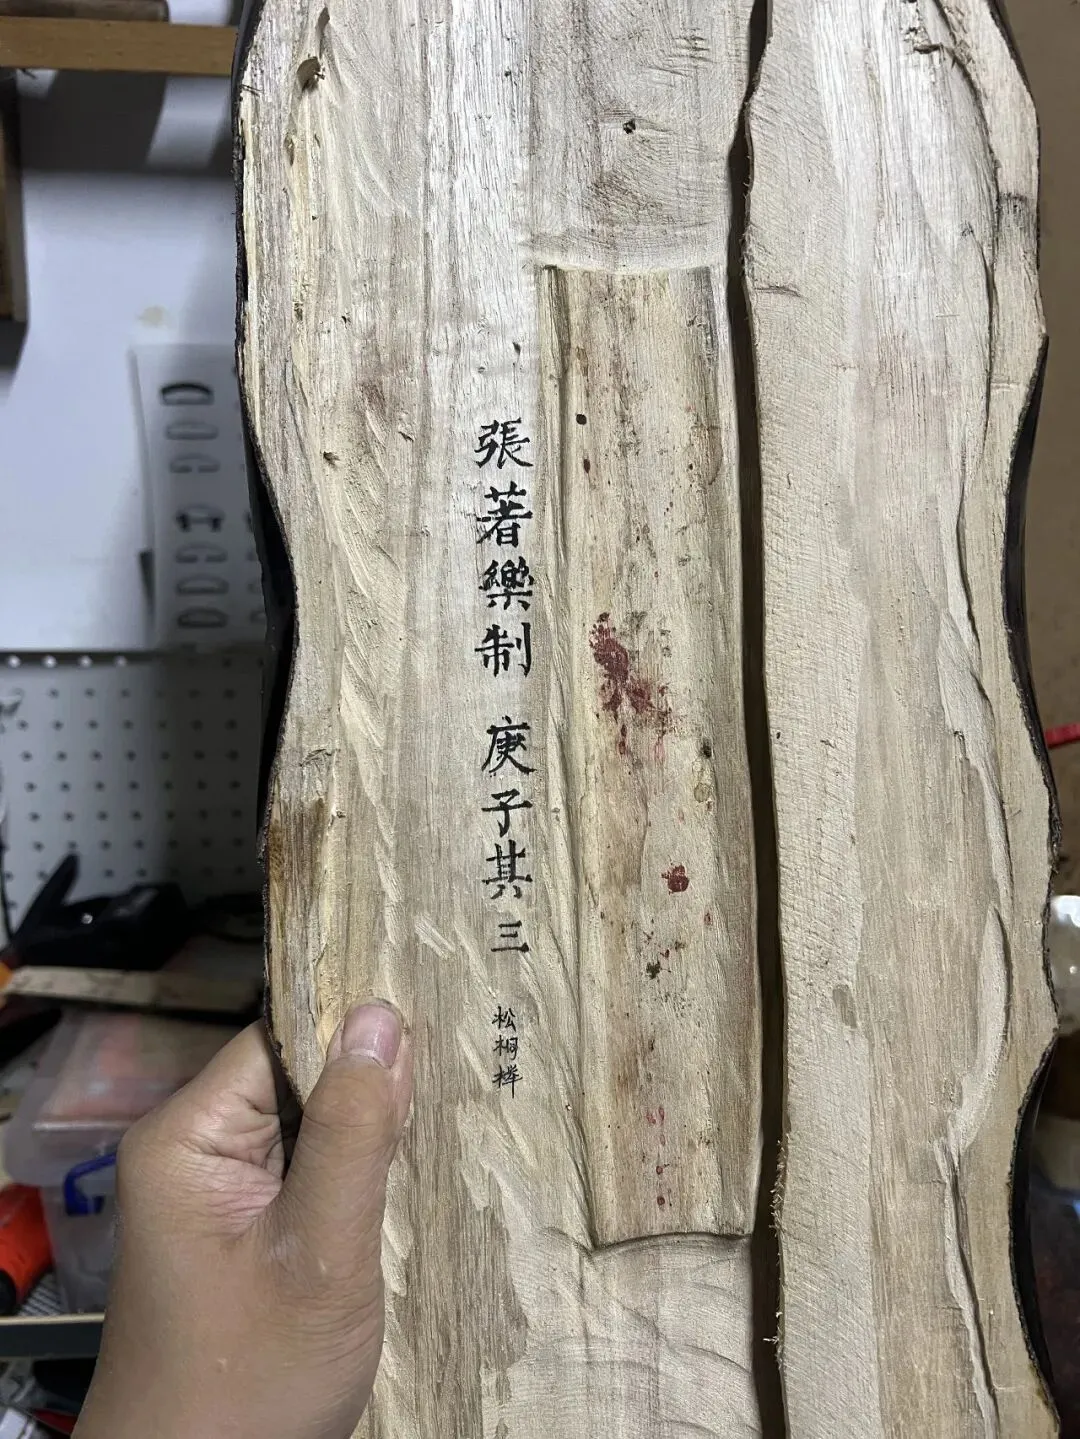 張著樂制 庚子其三
松桐樺